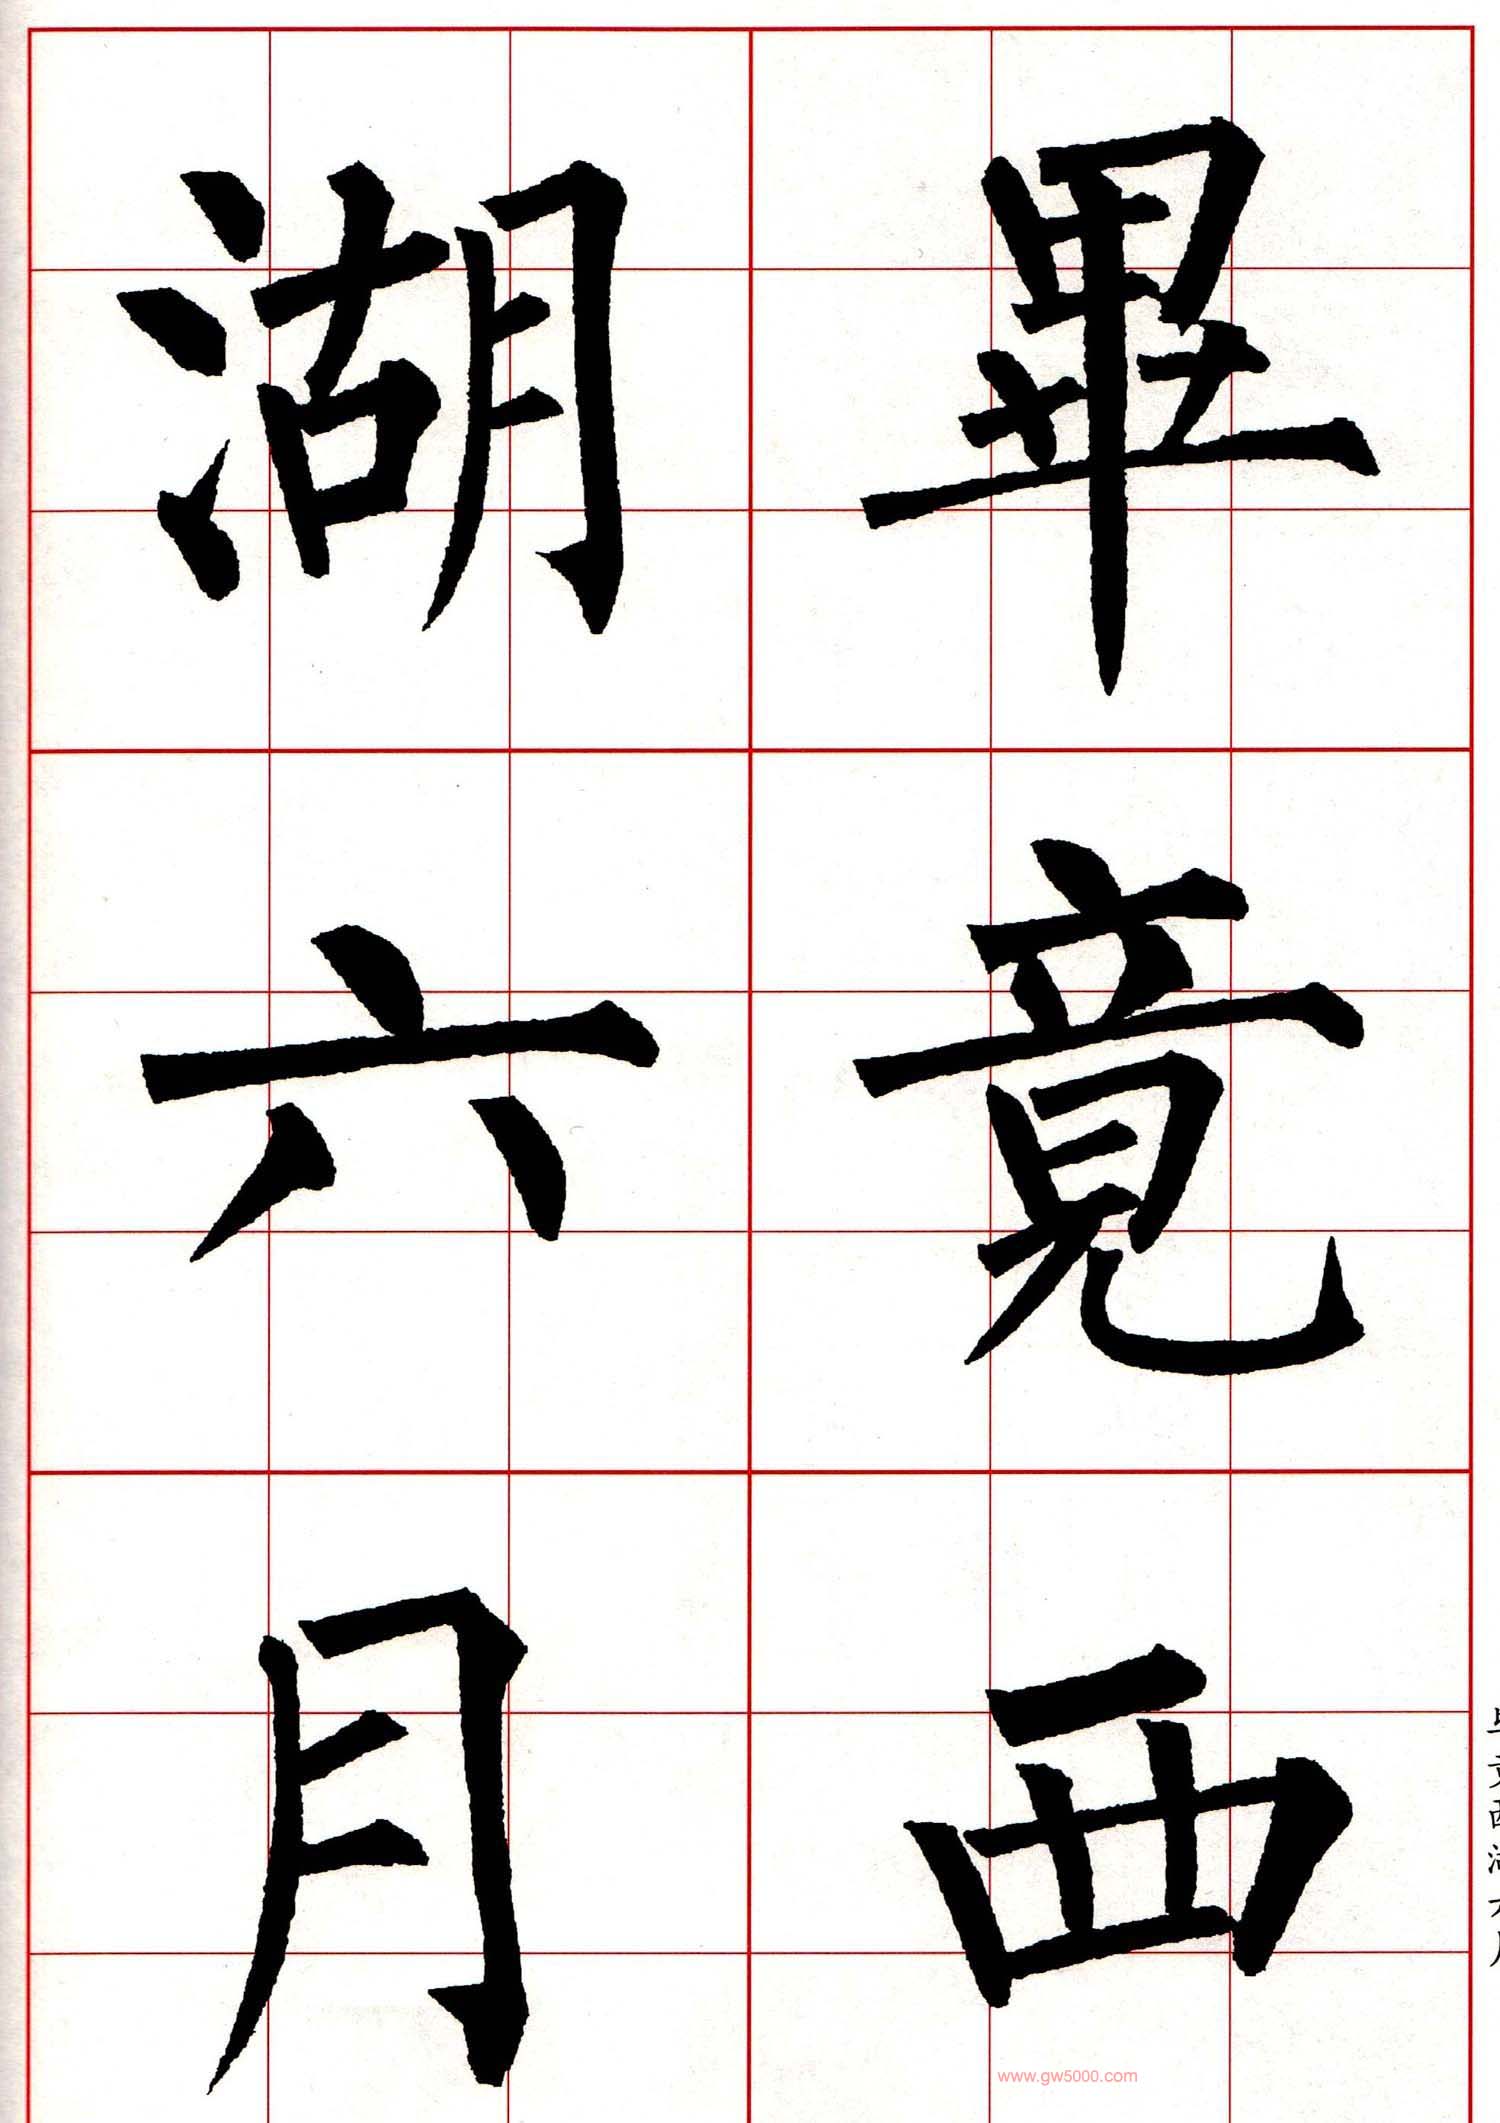 畢竟西
湖六月
www.gw5000.com